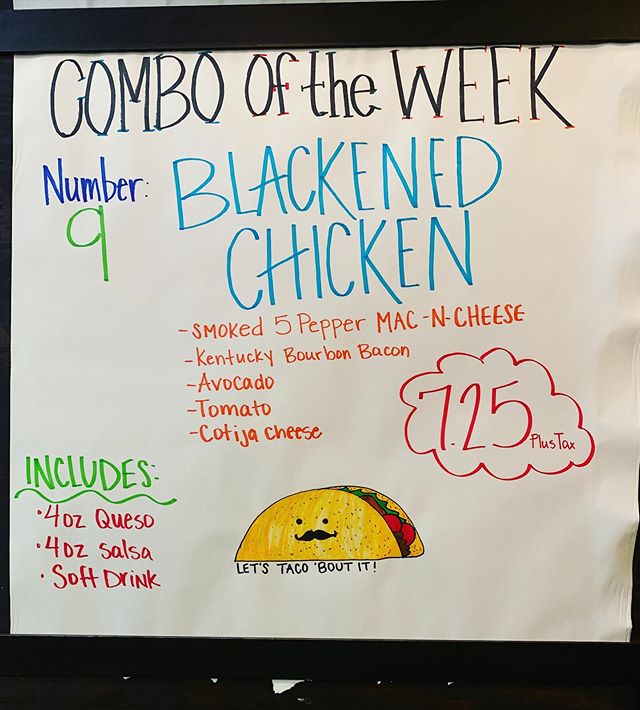 COMBO Of the WEEK
Number:
9
BLACKENED
CHICKEN
-SMOKED 5 Pepper MAC-N-CHEESE
-Kentucky Bourbon Bacon
-Avocado
-Tomato
-Cotija cheese
7.25 Plus Tax
INCLUDES:
•4oz Queso
•4oz Salsa
•Soft Drink
LET'S TACO 'BOUT IT!